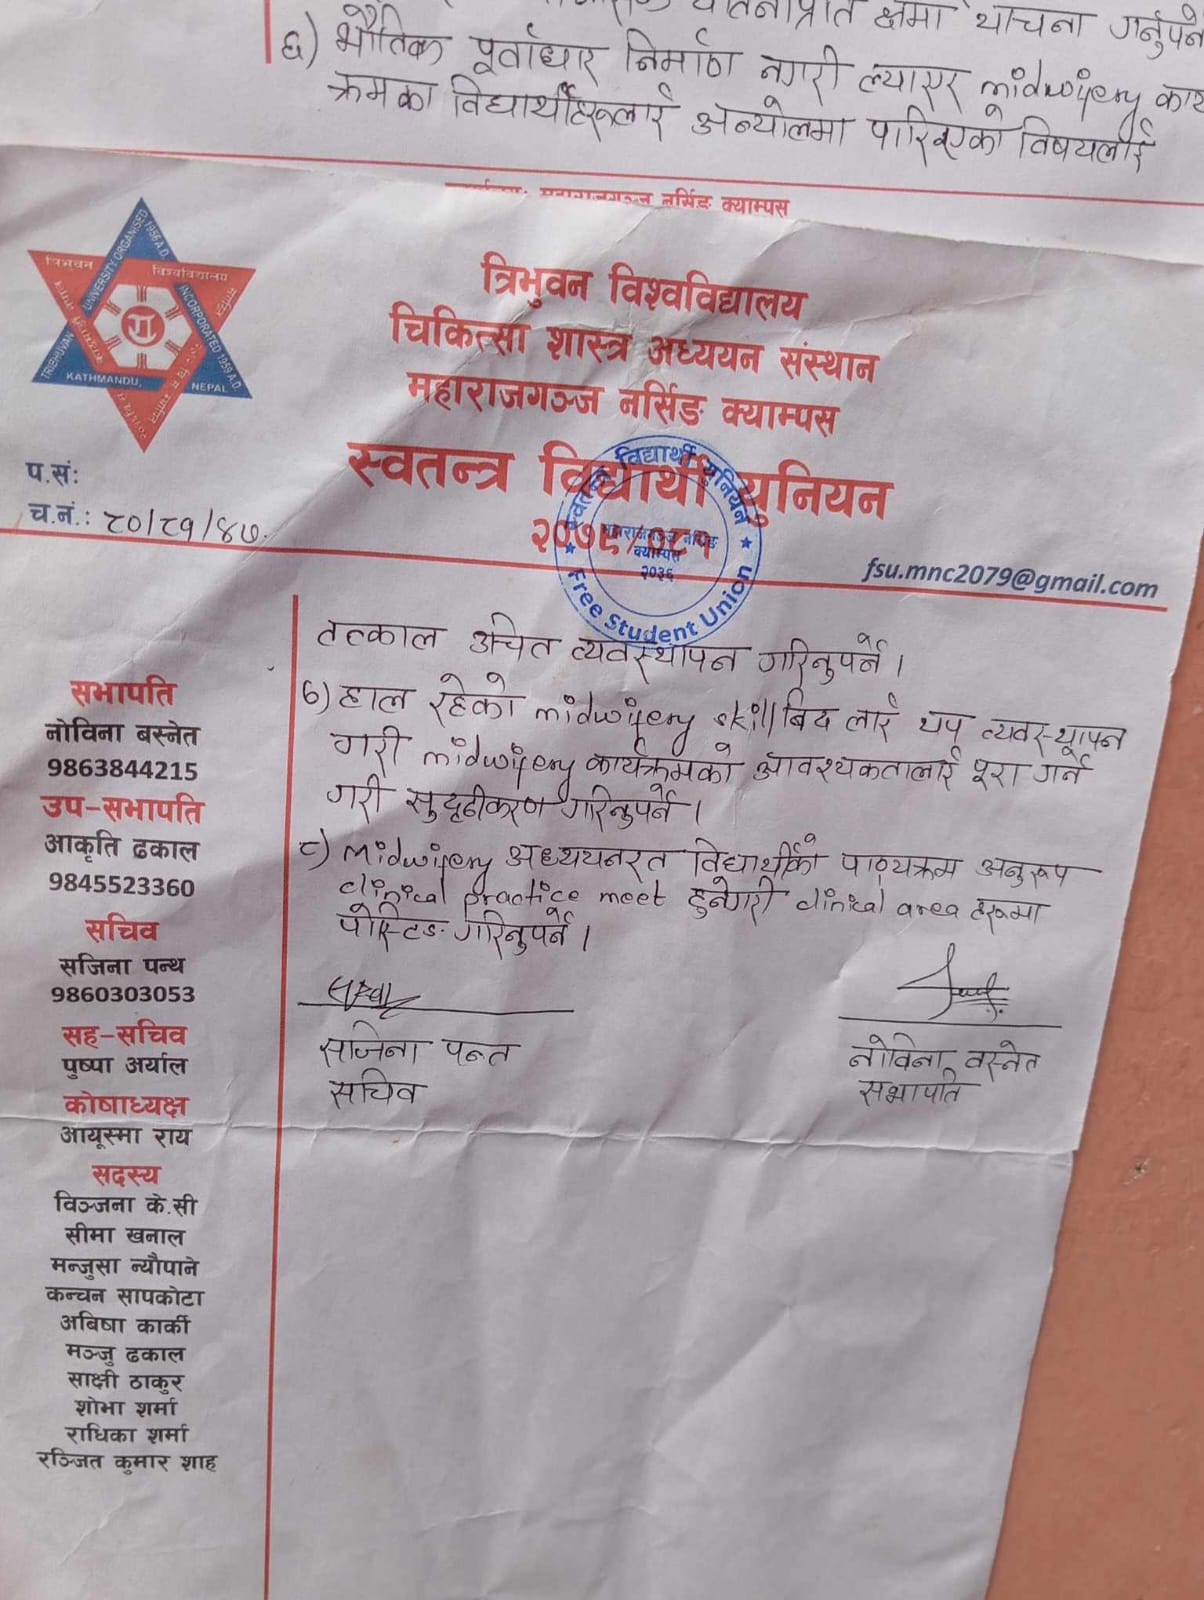 क्षमा याचना गर्नुपर्ने
६) भौतिक पूर्वाधार निर्माण नगरी ल्याएर midwifery कार्य
क्रमका विद्यार्थीहरूलाई अन्योलमा पारिएको विषयलाई
महाराजगञ्ज नर्सिङ क्याम्पस
त्रिभुवन विश्वविद्यालय
चिकित्सा शास्त्र अध्ययन संस्थान
महाराजगञ्ज नर्सिङ क्याम्पस
स्वतन्त्र विद्यार्थी युनियन
२०७९/०८१
त्रिभुवन विश्वविद्यालय
TRIBHUVAN UNIVERSITY ORGANISED 1956 A.D.
INCORPORATED 1959 A.D.
KATHMANDU, NEPAL
स्वतन्त्र विद्यार्थी युनियन
महाराजगञ्ज नर्सिङ
क्याम्पस
२०३६
★ Free Student Union ★
प.सं:
च.नं.: ८०/८१/४७.
fsu.mnc2079@gmail.com
तत्काल उचित व्यवस्थापन गरिनुपर्ने।
७) हाल रहेको midwifery skill बिद लाई थप व्यवस्थापन
गरी midwifery कार्यक्रमको आवश्यकतालाई पूरा गर्ने
गरी सुदृढीकरण गरिनुपर्ने।
८) Midwifery अध्ययनरत विद्यार्थीको पाठ्यक्रम अनुरूप
clinical practice meet हुनेगरी clinical area हरूमा
पोस्टिङ गरिनुपर्ने।
सजिना पन्त
सचिव
नोविना बस्नेत
सभापति
सभापति
नोविना बस्नेत
9863844215
उप-सभापति
आकृति ढकाल
9845523360
सचिव
सजिना पन्थ
9860303053
सह-सचिव
पुष्पा अर्याल
कोषाध्यक्ष
आयूस्मा राय
सदस्य
विञ्जना के.सी
सीमा खनाल
मन्जुसा न्यौपाने
कन्चन सापकोटा
अबिषा कार्की
मञ्जु ढकाल
साक्षी ठाकुर
शोभा शर्मा
राधिका शर्मा
रञ्जित कुमार शाह